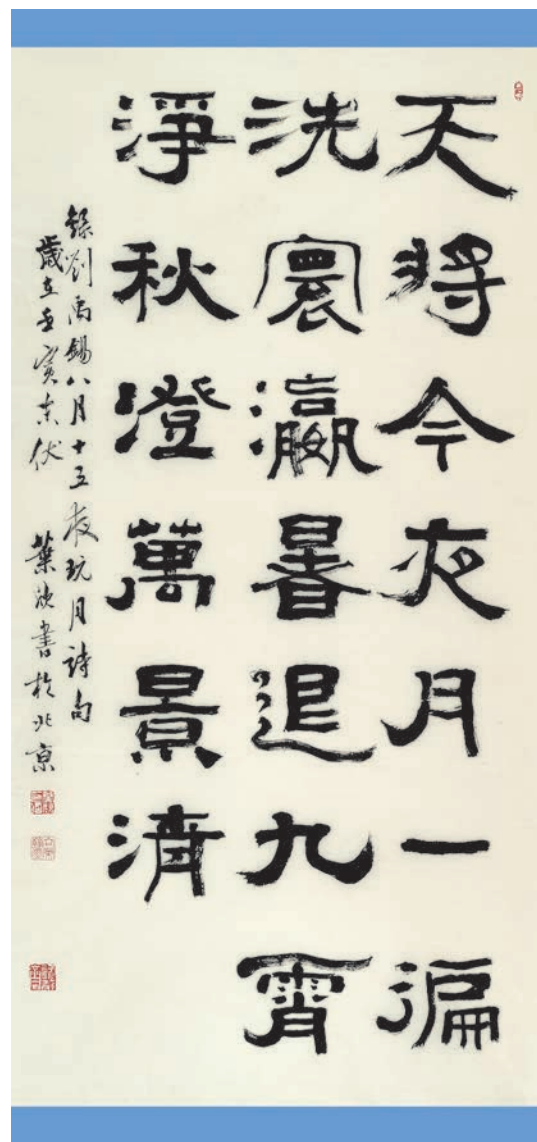 天將今夜月一徧
洗寰瀛暑退九霄
淨秋澄萬景清
錄劉禹錫八月十五夜玩月詩句
歲在壬寅末伏 葉書於北京